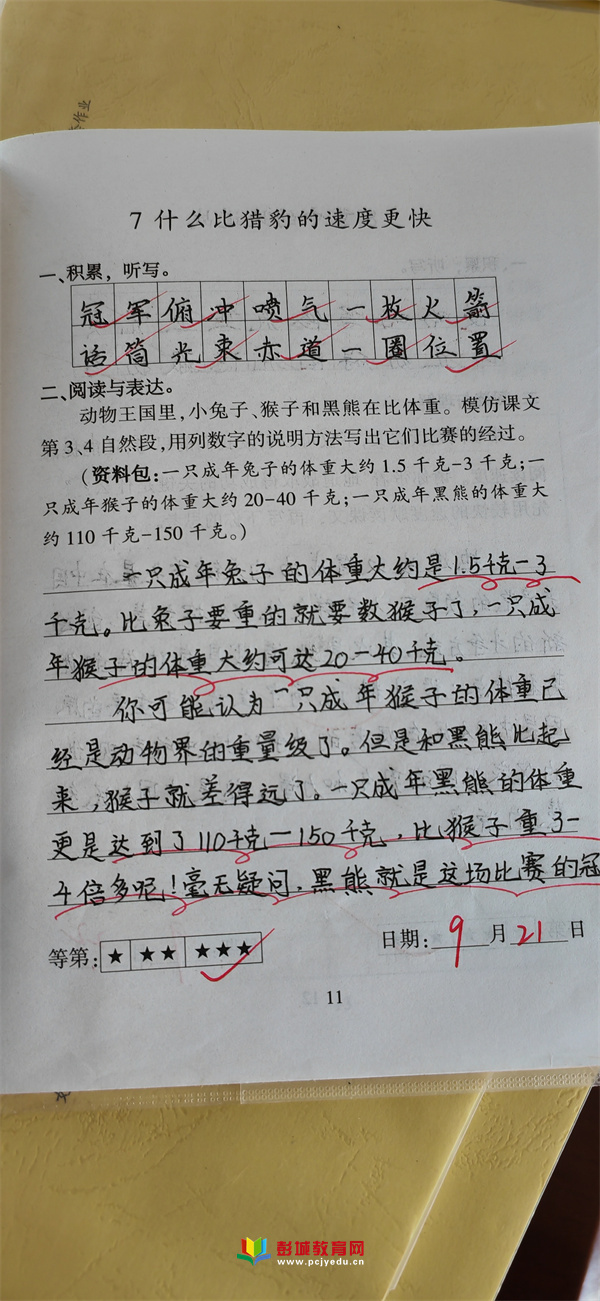 7 什么比猎豹的速度更快
一、积累，听写。
冠军俯冲喷气一枚火箭
话筒光束赤道一圈位置
二、阅读与表达。
动物王国里，小兔子、猴子和黑熊在比体重。模仿课文
第3、4自然段，用列数字的说明方法写出它们比赛的经过。
（资料包：一只成年兔子的体重大约1.5千克-3千克；一
只成年猴子的体重大约20-40千克；一只成年黑熊的体重大
约110千克-150千克。）
一只成年兔子的体重大约是1.5千克-3
千克。比兔子要重的就要数猴子了，一只成
年猴子的体重大约可达20-40千克。
你可能认为一只成年猴子的体重已
经是动物界的重量级了。但是和黑熊比起
来，猴子就差得远了。一只成年黑熊的体重
更是达到了110千克-150千克，比猴子重3-
4倍多呢！毫无疑问，黑熊就是这场比赛的冠
等第：★ ★★ ★★★
日期：9月21日
11
彭城教育网
www.pcjyedu.cn